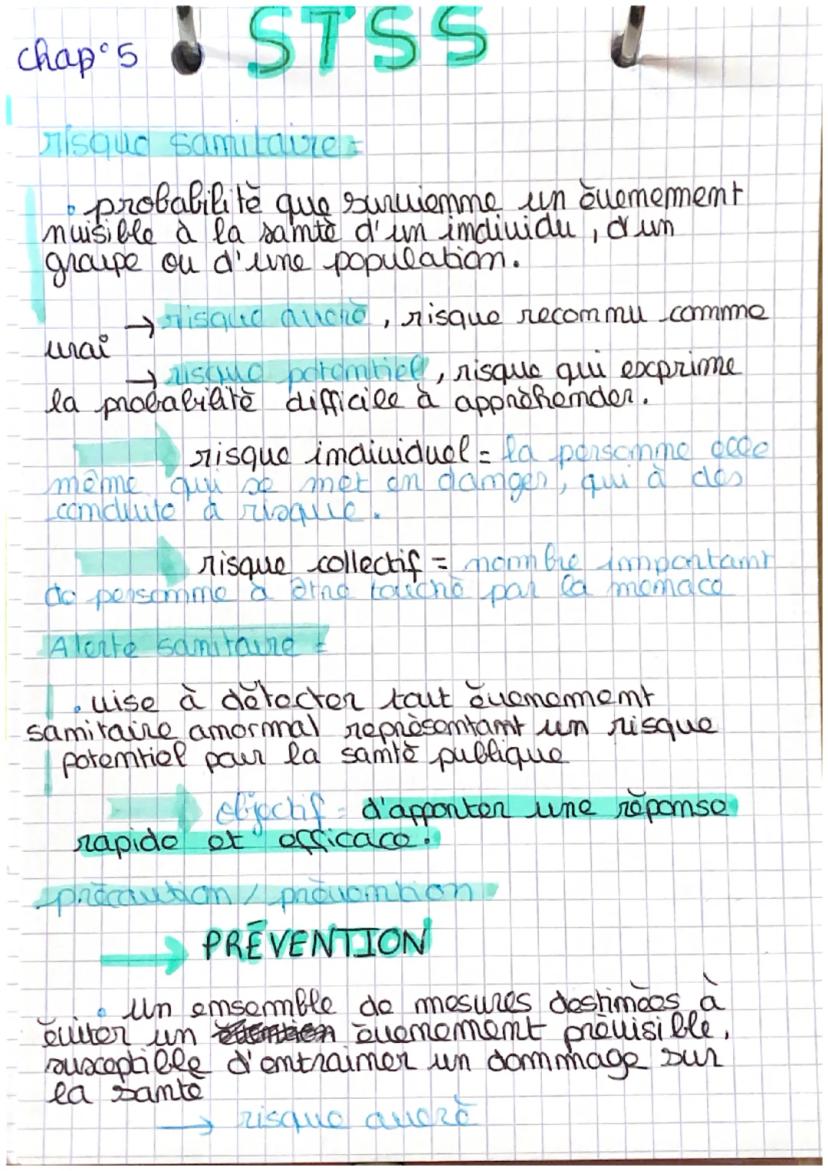 chap° 5
STSS
risque sanitaire =
• probabilité que survienne un évenement
nuisible à la santé d'un individu, d'un
groupe ou d'une population.
→ risque avéré, risque reconnu comme
vrai
→ risque potentiel, risque qui exprime
la probabilité difficile à appréhender.
risque individuel = la personne elle
même qui se met en danger, qui à des
conduite à risque.
risque collectif = nombre important
de personne à être touché par la menace
Alerte sanitaire =
• vise à détecter tout évenement
sanitaire anormal représentant un risque
potentiel pour la santé publique
objectif = d'apporter une réponse
rapide et efficace.
précaution / prévention
→ PRÉVENTION
• Un ensemble de mesures destinées à
éviter un évenement prévisible,
susceptible d'entrainer un dommage sur
la santé
→ risque avéré